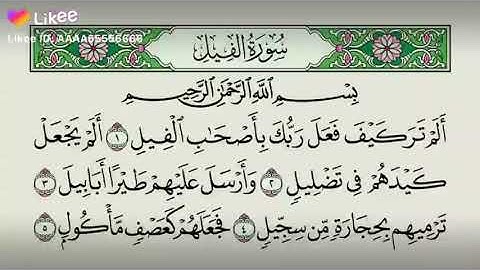 Likee
Likee ID: AAAA65556666
سُورَةُ الفِيلِ
بِسْمِ اللَّهِ الرَّحْمَٰنِ الرَّحِيمِ
أَلَمْ تَرَ كَيْفَ فَعَلَ رَبُّكَ بِأَصْحَابِ الْفِيلِ ١ أَلَمْ يَجْعَلْ
كَيْدَهُمْ فِي تَضْلِيلٍ ٢ وَأَرْسَلَ عَلَيْهِمْ طَيْرًا أَبَابِيلَ ٣
تَرْمِيهِم بِحِجَارَةٍ مِّن سِجِّيلٍ ٤ فَجَعَلَهُمْ كَعَصْفٍ مَّأْكُولٍ ٥